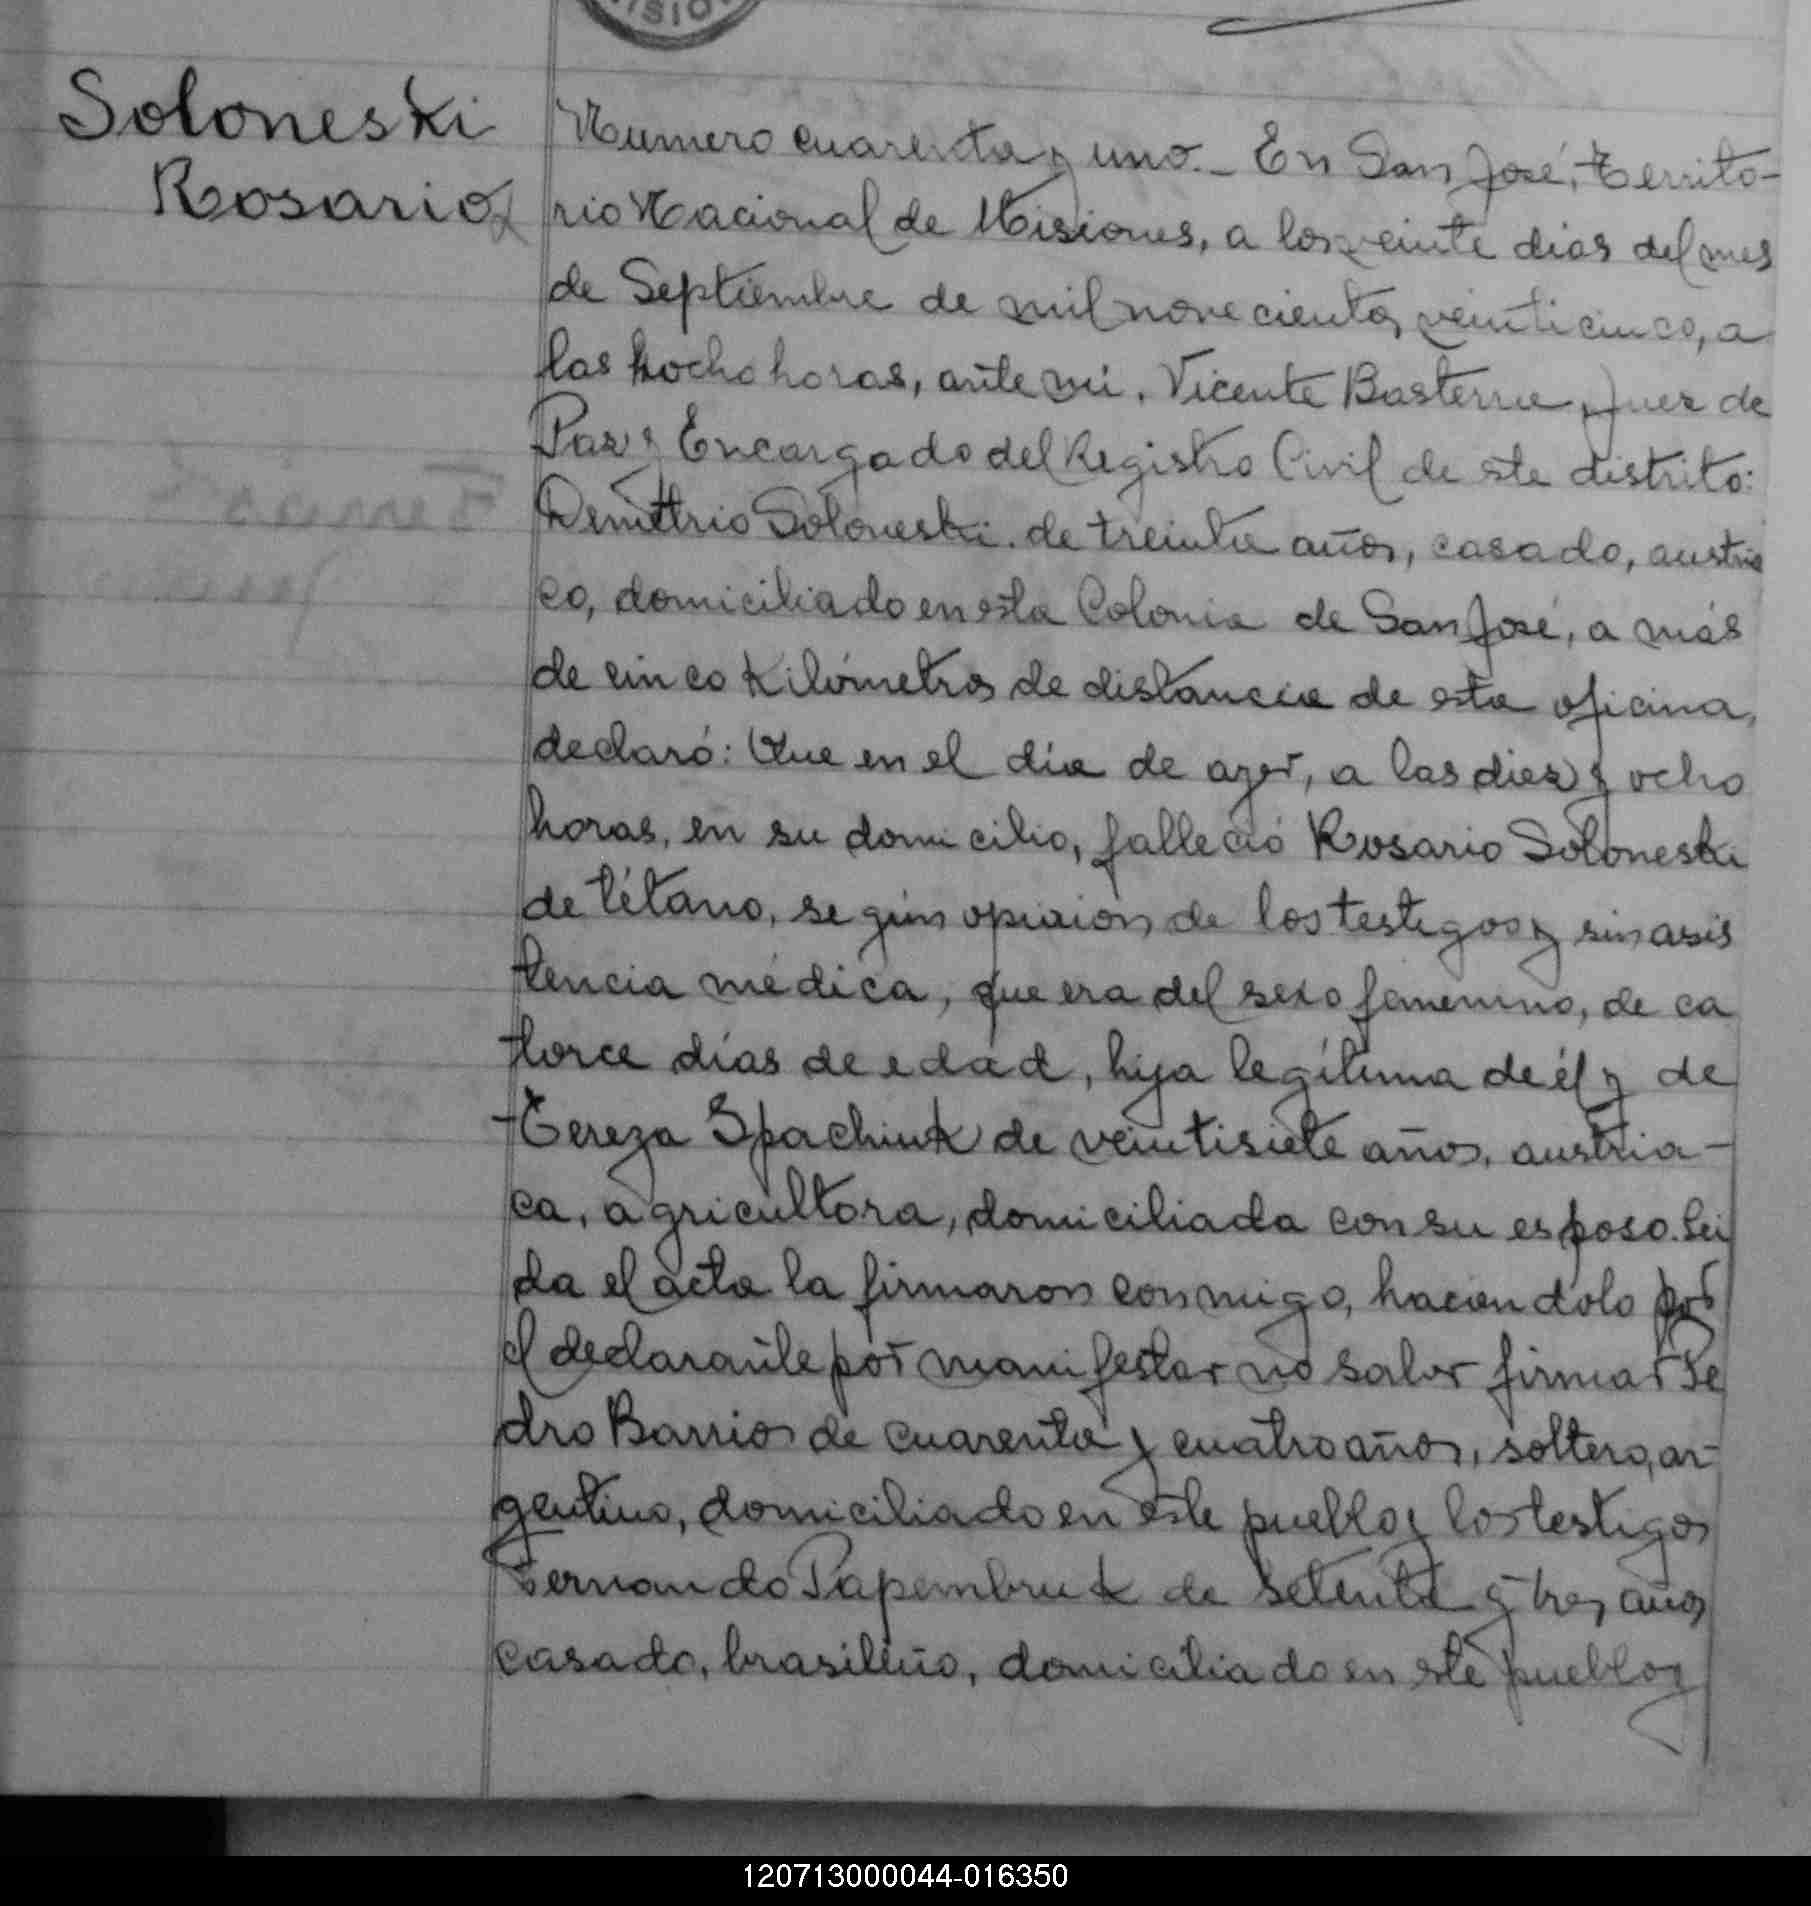 Soloneski
Rosario
Numero cuarenta y uno._ En San José, Territo-
rio Nacional de Misiones, a los veinte dias del mes
de Septiembre de mil novecientos veinticinco, a
las ocho horas, ante mi, Vicente Basterra, Juez de
Paz y Encargado del Registro Civil de este distrito:
Demetrio Soloneski de treinta años, casado, austria
co, domiciliado en esta Colonia de San José, a más
de cinco Kilómetros de distancia de esta oficina,
declaró: Que en el dia de ayer, a las diez y ocho
horas, en su domicilio, falleció Rosario Soloneski
de tétano, según opinión de los testigos y sin asis
tencia médica, que era del sexo femenino, de ca
torce días de edad, hija legítima de él y de
Tereza Spachiuk de veintisiete años, austria-
ca, agricultora, domiciliada con su esposo. Lei
da el acta la firmaron conmigo, haciendolo por
el declarante por manifestar no saber firmar Pe
dro Barrios de cuarenta y cuatro años, soltero, ar-
gentino, domiciliado en este pueblo y los testigos
Fernando Papembruk de setenta y tres años
casado, brasileño, domiciliado en este pueblo y
120713000044-016350